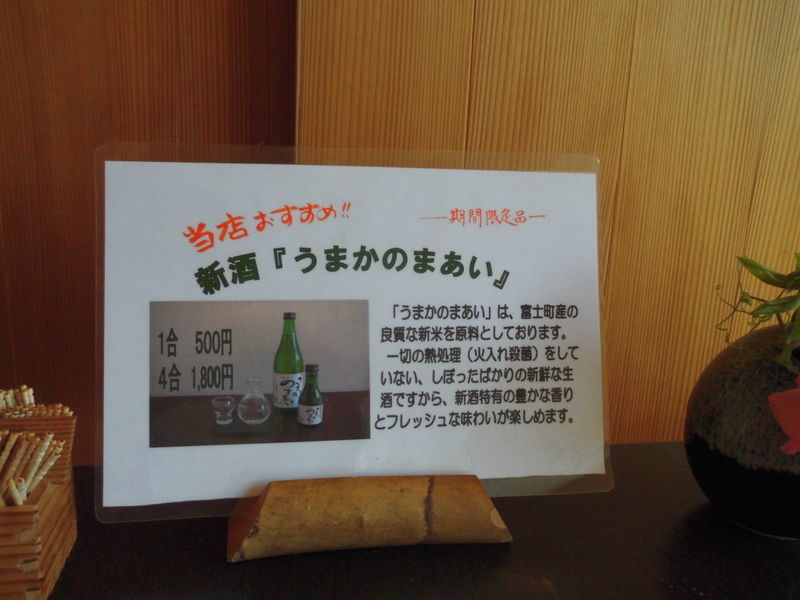 当店おすすめ!!
―期間限定品―
新酒『うまかのまあい』
1合 500円
4合 1,800円
「うまかのまあい」は、富士町産の
良質な新米を原料としております。
一切の熱処理（火入れ殺菌）をして
いない、しぼったばかりの新鮮な生
酒ですから、新酒特有の豊かな香り
とフレッシュな味わいが楽しめます。